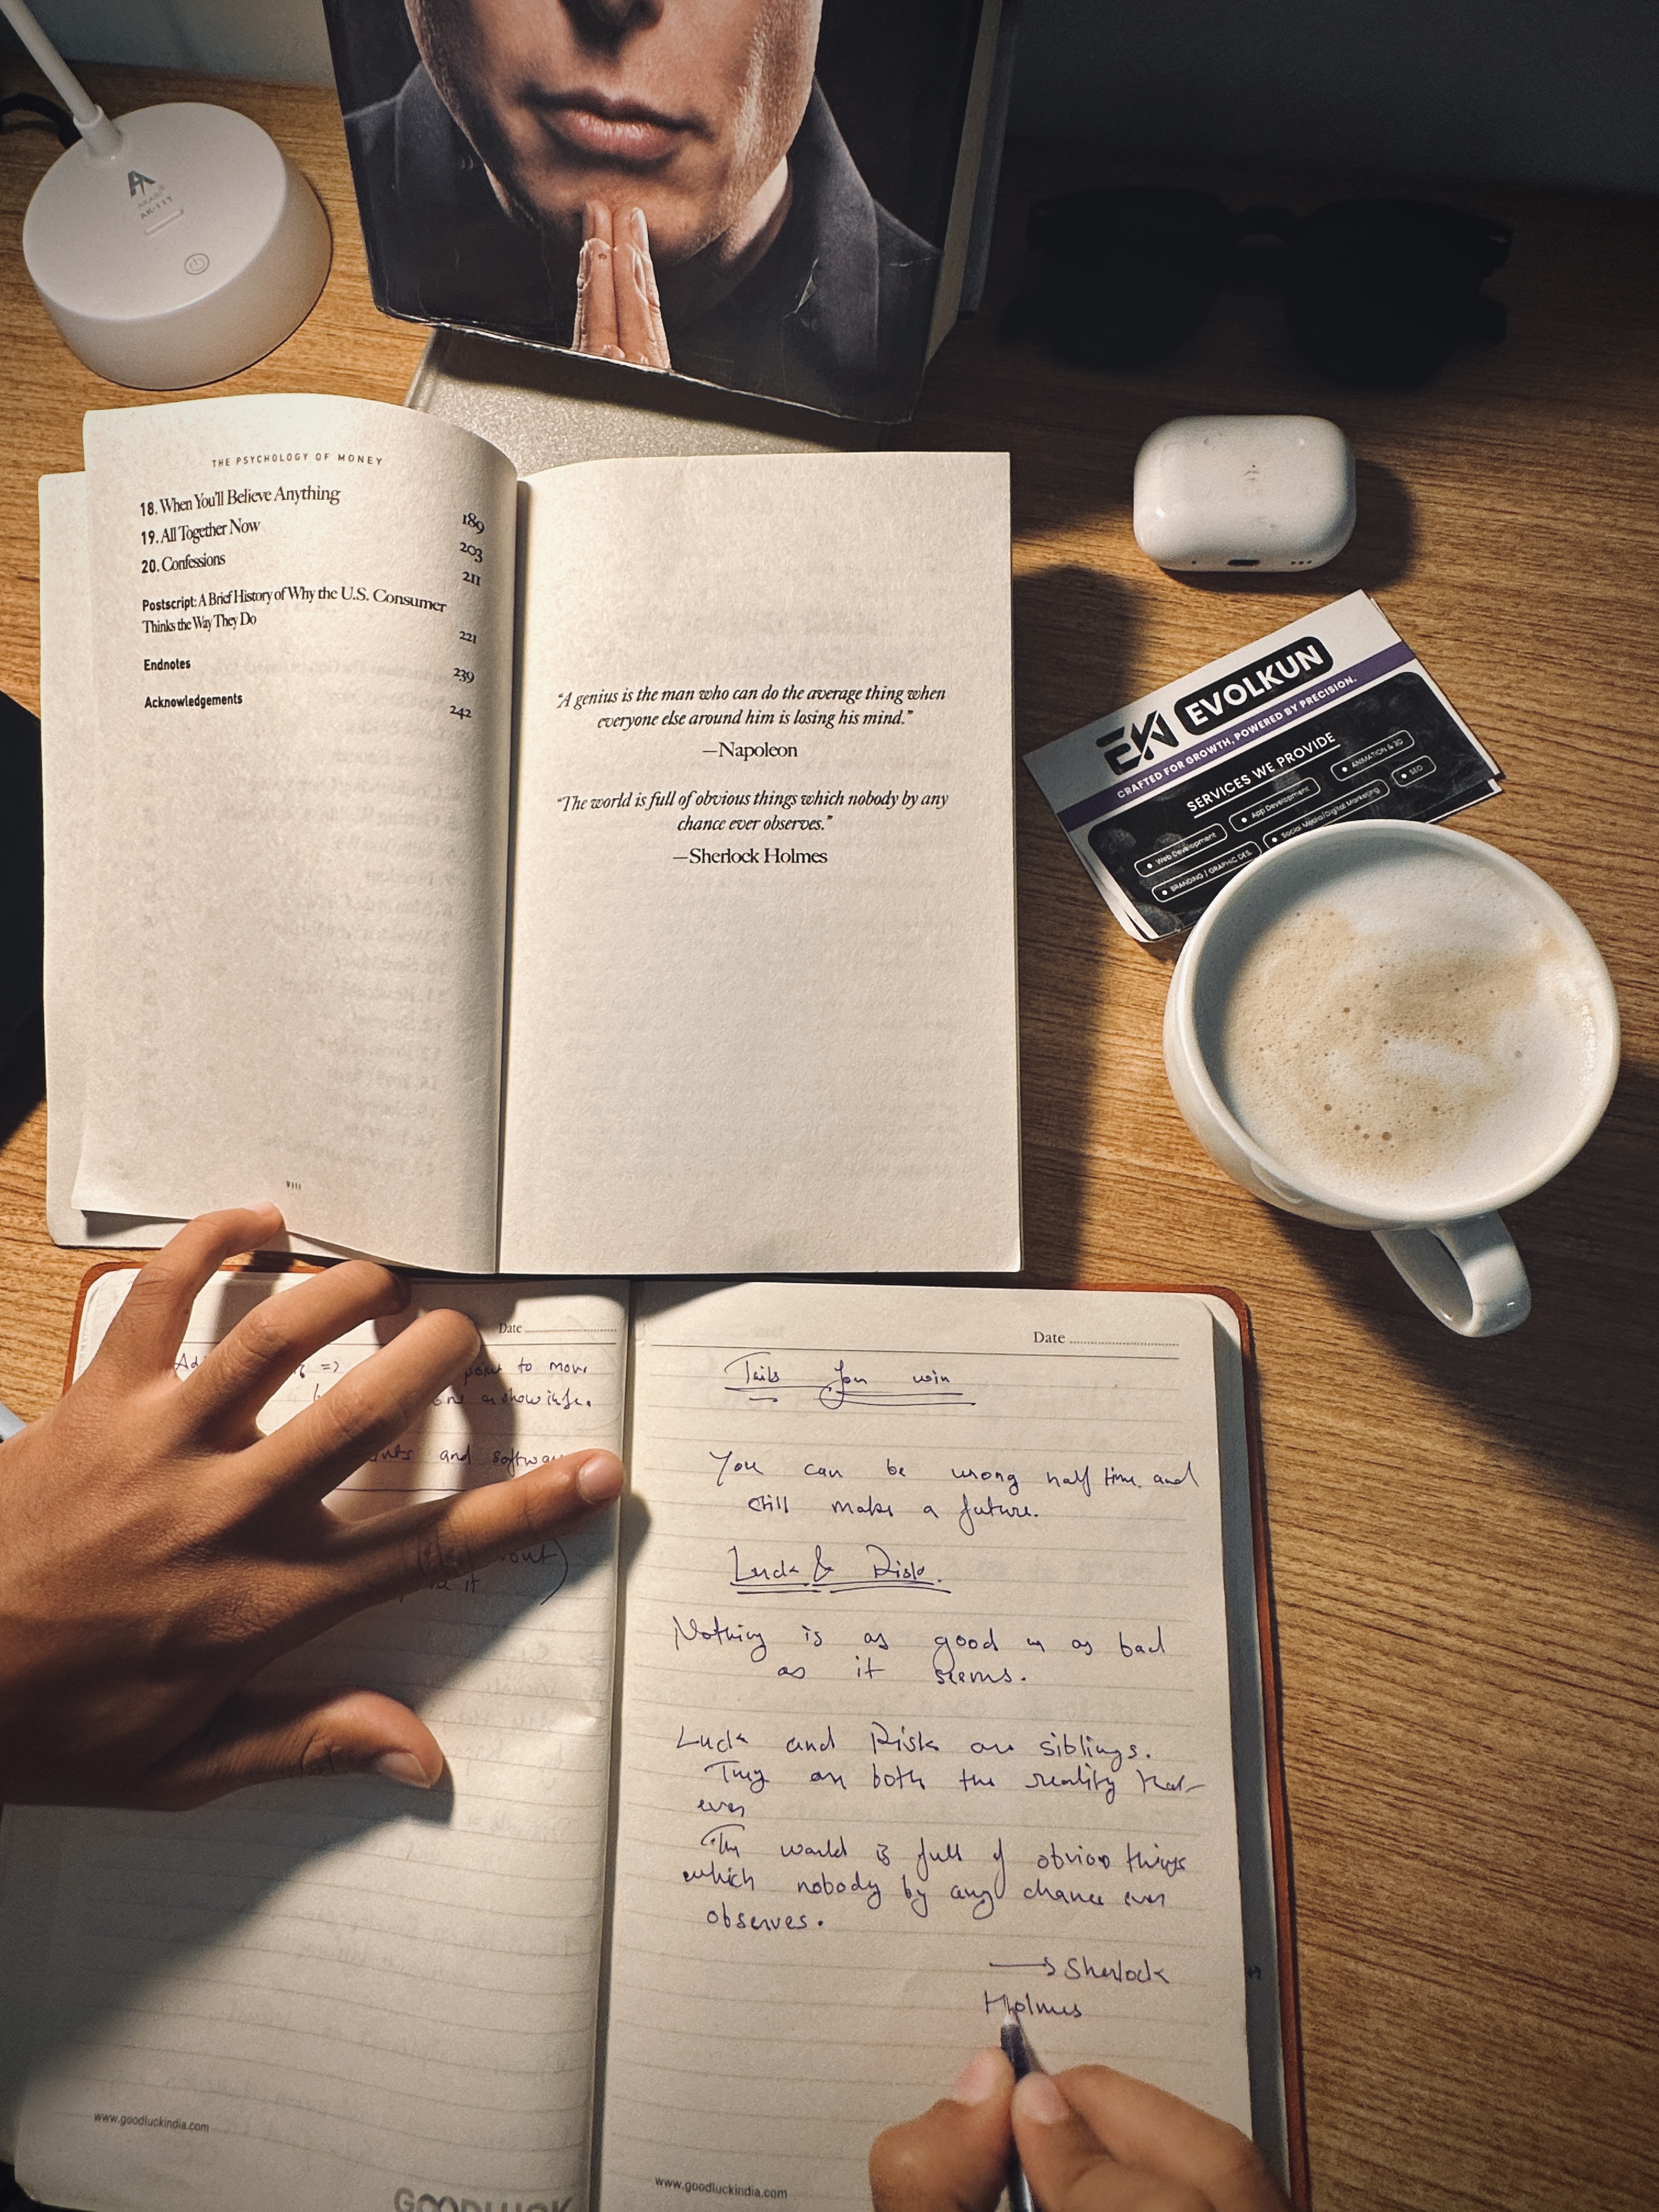 AKARI
AK-111
THE PSYCHOLOGY OF MONEY
18. When You'll Believe Anything 189
19. All Together Now 203
20. Confessions 211
Postscript: A Brief History of Why the U.S. Consumer
Thinks the Way They Do 221
Endnotes 239
Acknowledgements 242
VIII
“A genius is the man who can do the average thing when
everyone else around him is losing his mind.”
—Napoleon
“The world is full of obvious things which nobody by any
chance ever observes.”
—Sherlock Holmes
EK EVOLKUN
CRAFTED FOR GROWTH, POWERED BY PRECISION.
SERVICES WE PROVIDE
Web Development
App Development
ANIMATION & 3D
BRANDING / GRAPHIC DES.
Social Media/Digital Marketing
SEO
Date
point to move
and softwa
out)
it
www.goodluckindia.com
GOODLUCK
Date
Tails You win
You can be wrong half time and
still make a future.
Luck & Risk.
Nothing is as good as bad
as it seems.
Luck and Risk are siblings.
They are both the reality that
ever
The world is full of obvious things
which nobody by any chance ever
observes.
→ Sherlock
Holmes
www.goodluckindia.com